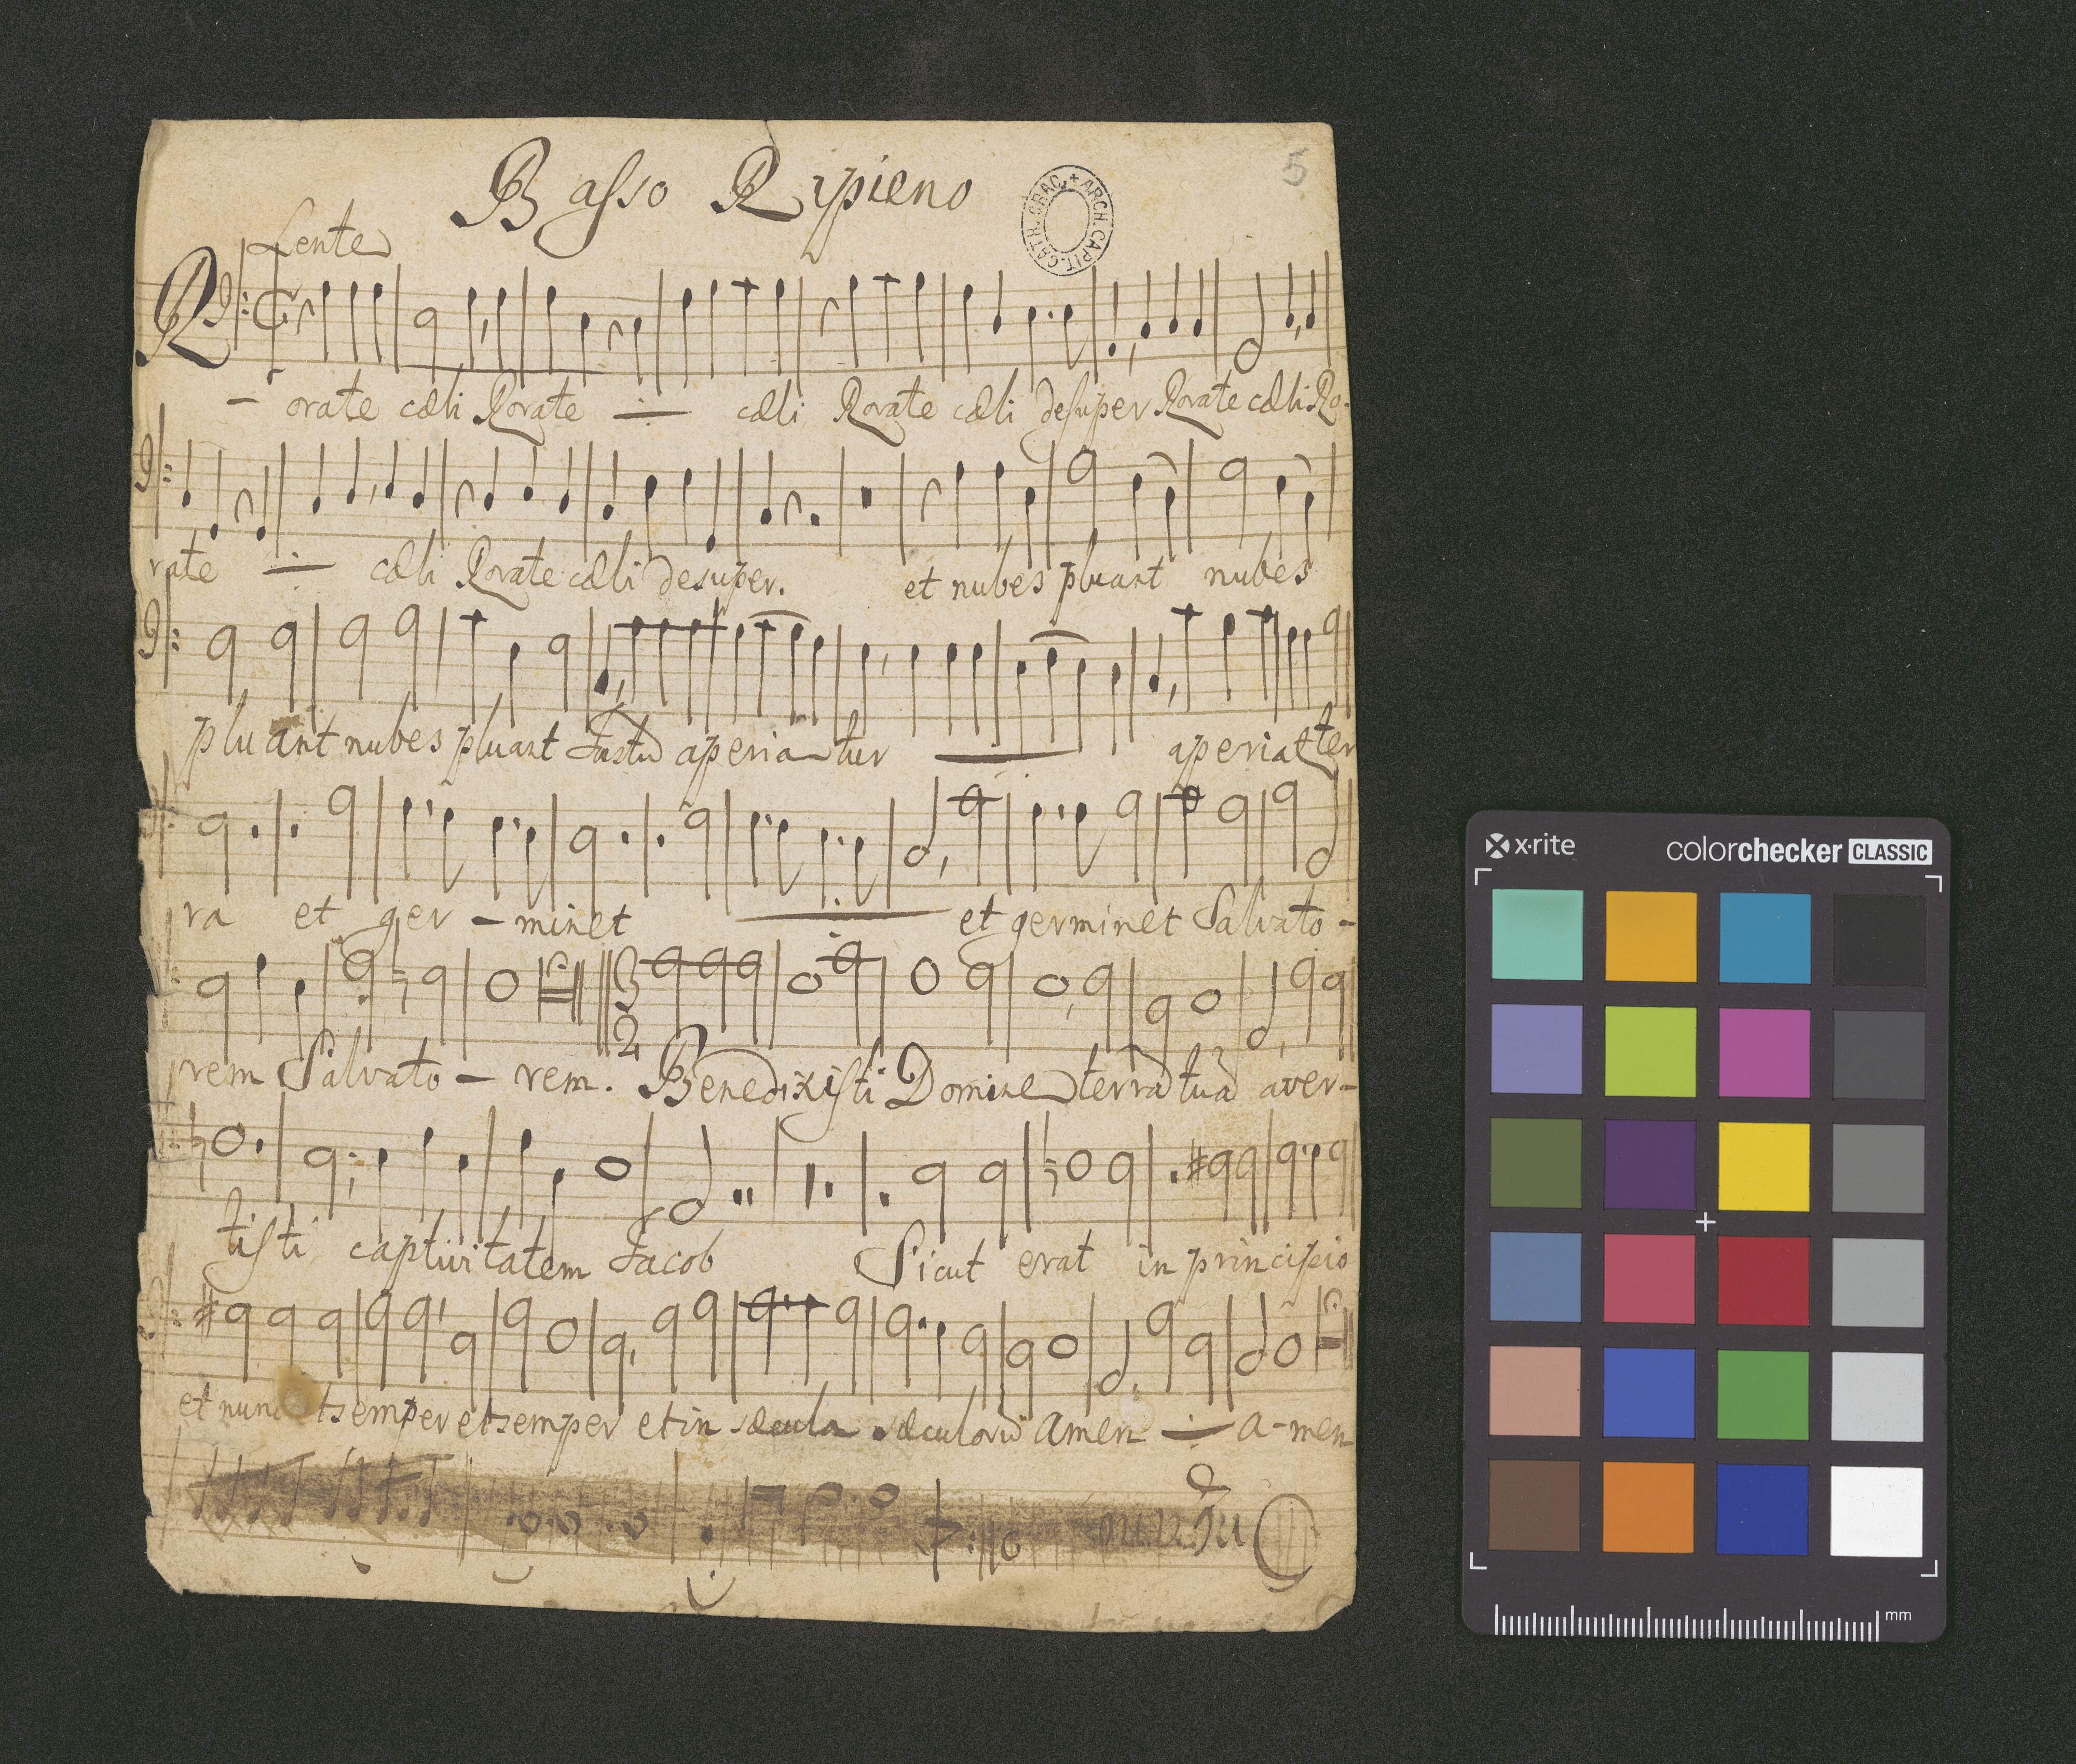 Basso Ripieno
5
ARCH. CAPIT. CATH. CRAC. +
Lente
R - orate cæli Rorate cæli Rorate cæli desuper Rorate cæli Ro-
rate cæli Rorate cæli desuper. et nubes pluant nubes
pluant nubes pluant Justũ aperia-tur aperiat ter
ra et ger - minet et germinet Salvato -
3
2
rem Salvato - rem. Benedixisti Domine terrã tuã aver-
tisti captivitatem Jacob Sicut erat in principio
et nunc et semper et semper et in sæcula sæculorũ Amen a-men
x·rite
colorchecker CLASSIC
mm